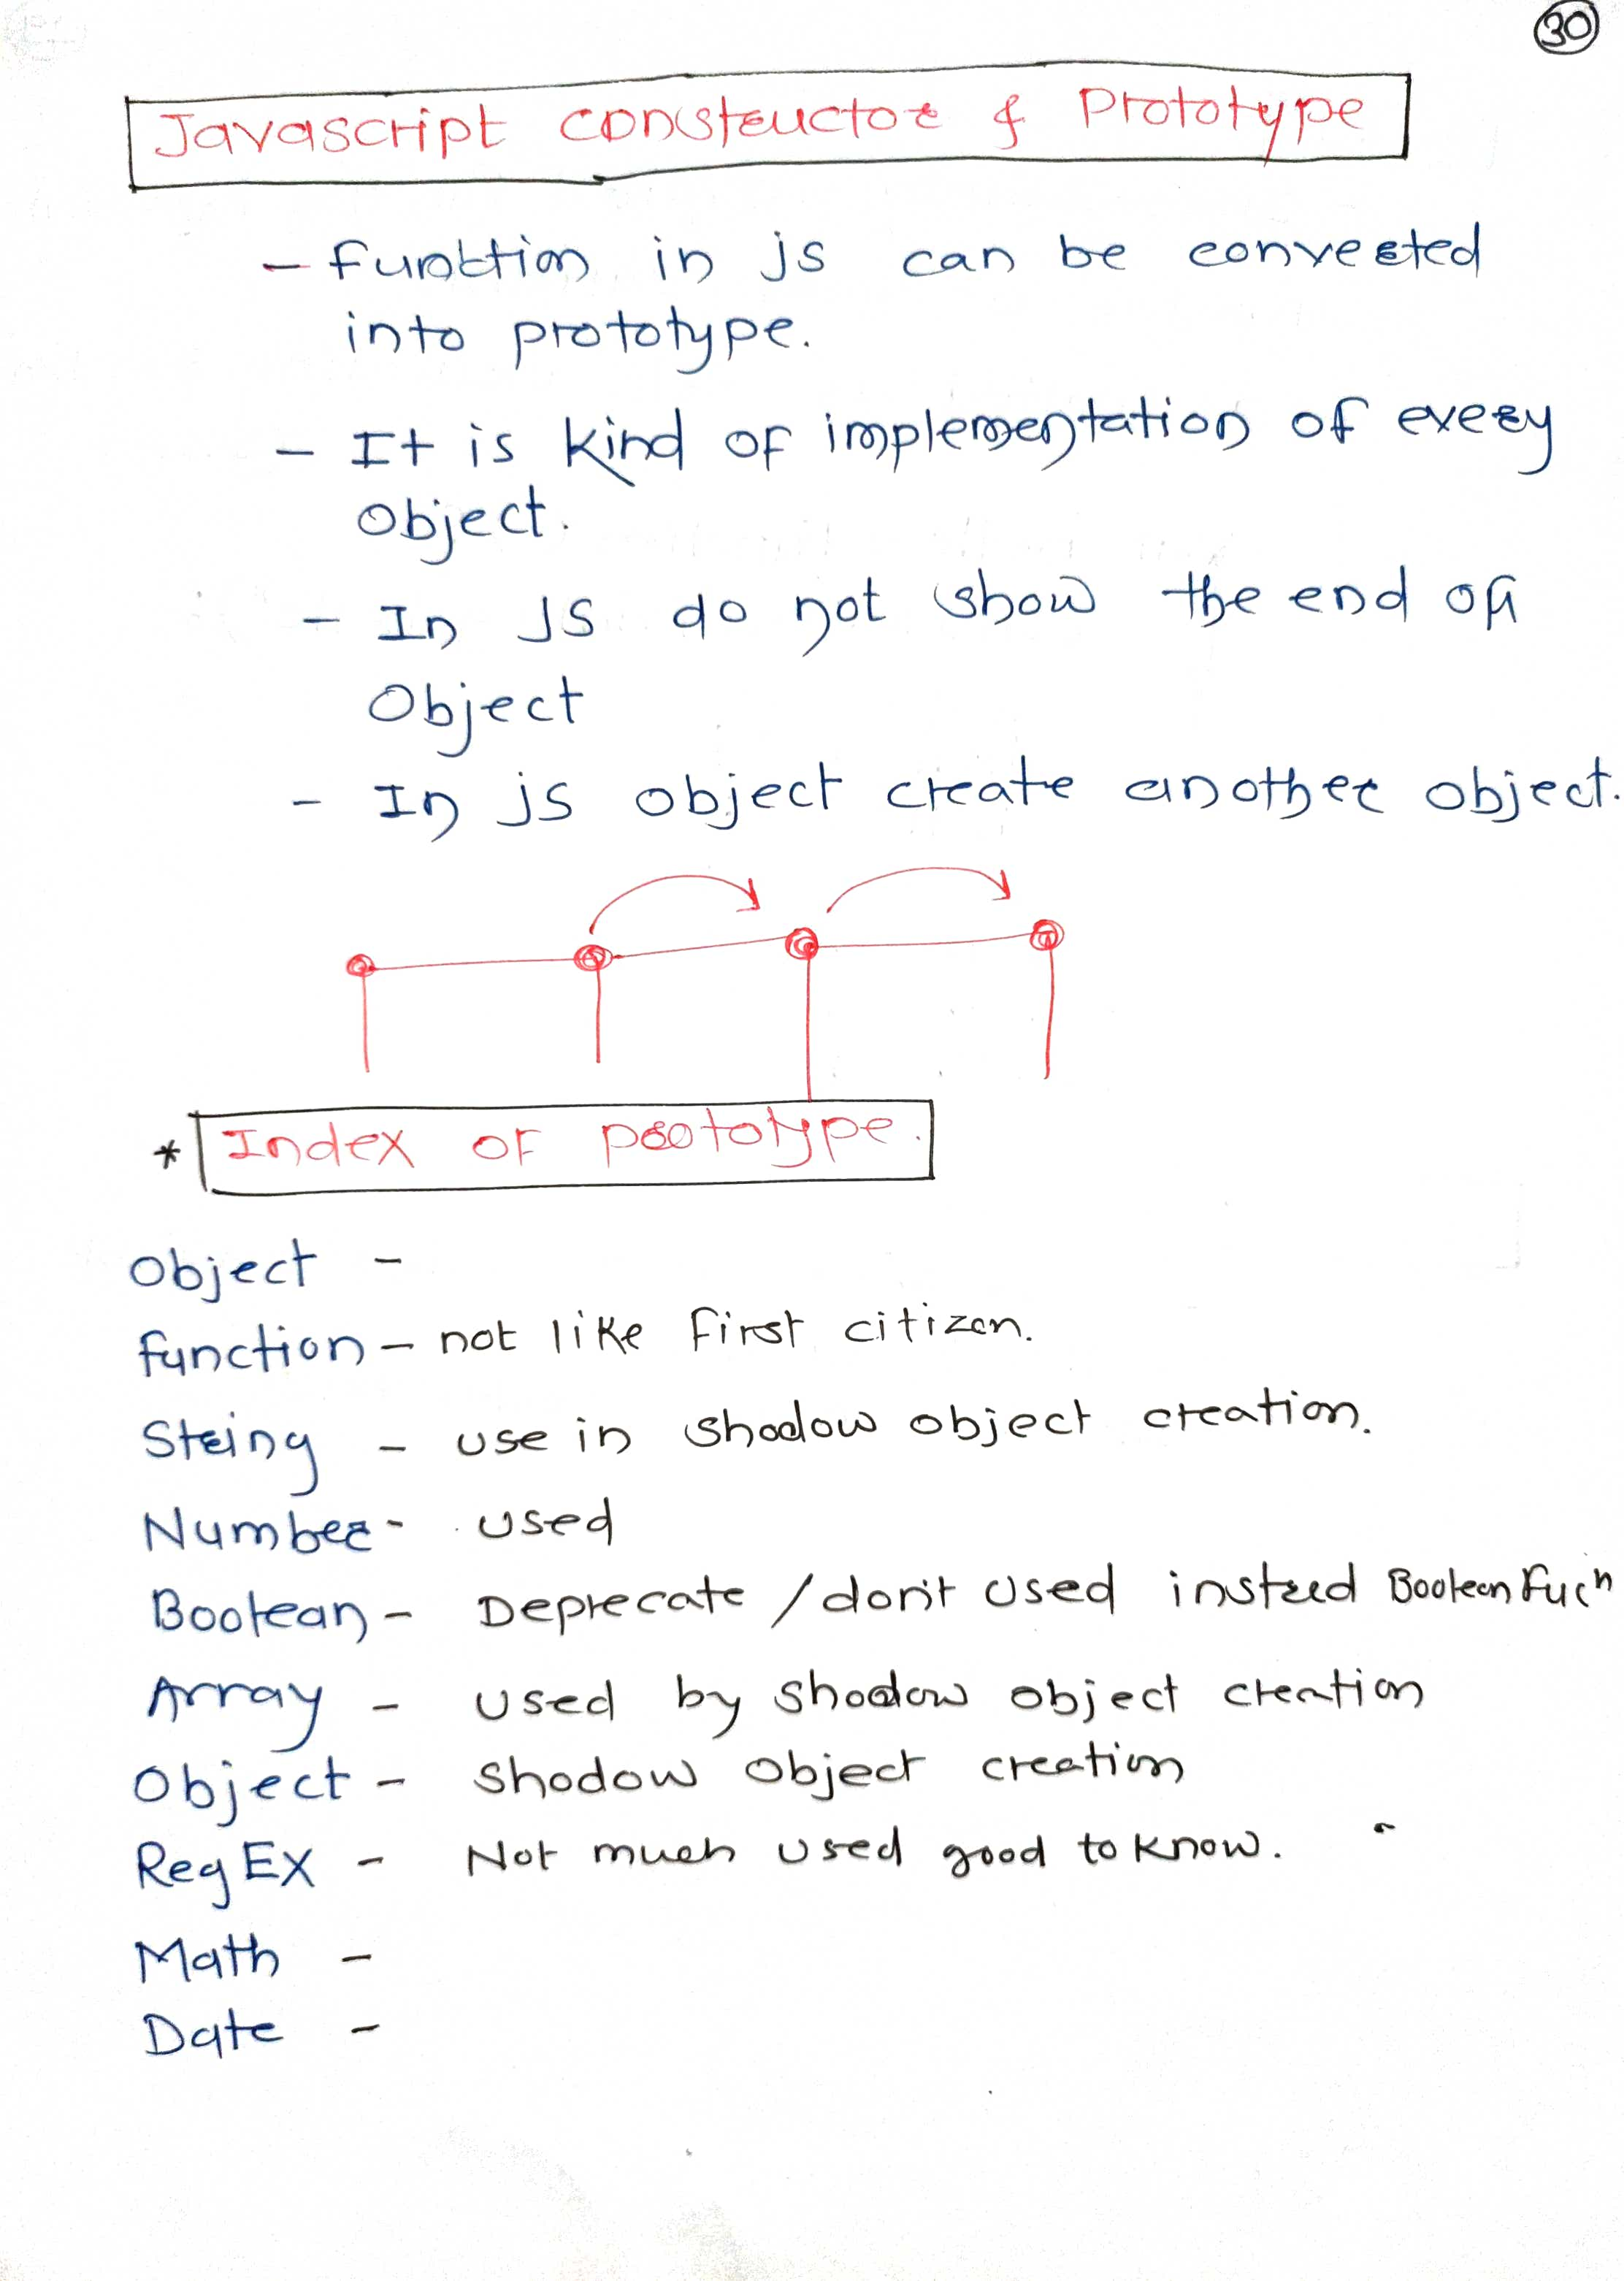 30
Javascript constructor & Prototype
- Function in js can be converted
into prototype.
- It is kind of implementation of every
object.
- In JS do not show the end of
Object
- In js object create another object.
* Index of prototype.
Object -
function - not like first citizen.
String - use in shadow object creation.
Number - used
Boolean - Deprecate / don't used instead Boolean Fucn
Array - used by shadow object creation
Object - shodow object creation
RegEX - Not much used good to know.
Math -
Date -